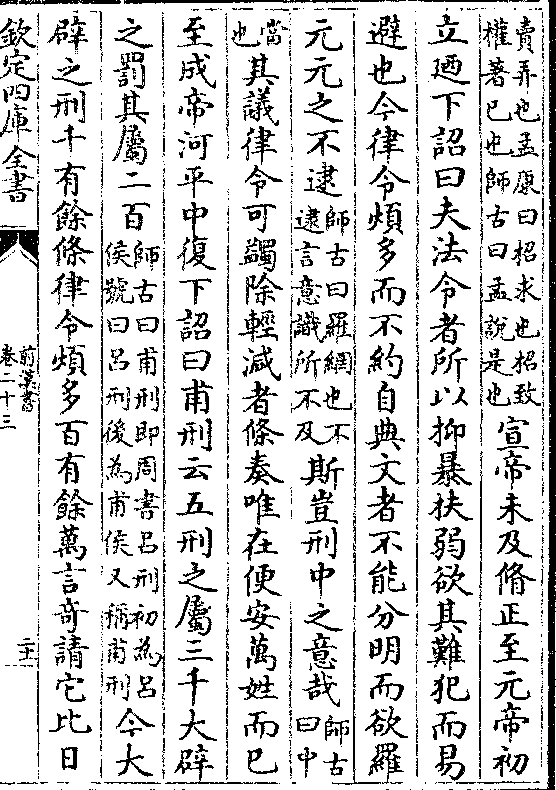 賣弄也孟康曰招求也招致
權著己也師古曰孟說是也宣帝未及脩正至元帝初
立廼下詔曰夫法令者所以抑暴扶弱欲其難犯而易
避也今律令煩多而不約自典文者不能分明而欲羅
元元之不逮師古曰羅網也不
逮言意識所不及斯豈刑中之意哉師古
曰中
當
也其議律令可蠲除輕減者條奏唯在便安萬姓而已
至成帝河平中復下詔曰甫刑云五刑之屬三千大辟
之罰其屬二百師古曰甫刑即周書呂刑初為呂
侯號曰呂刑後為甫侯又稱甫刑今大
辟之刑千有餘條律令煩多百有餘萬言奇請它比日
欽定四庫全書
前漢書
卷二十三
二十一